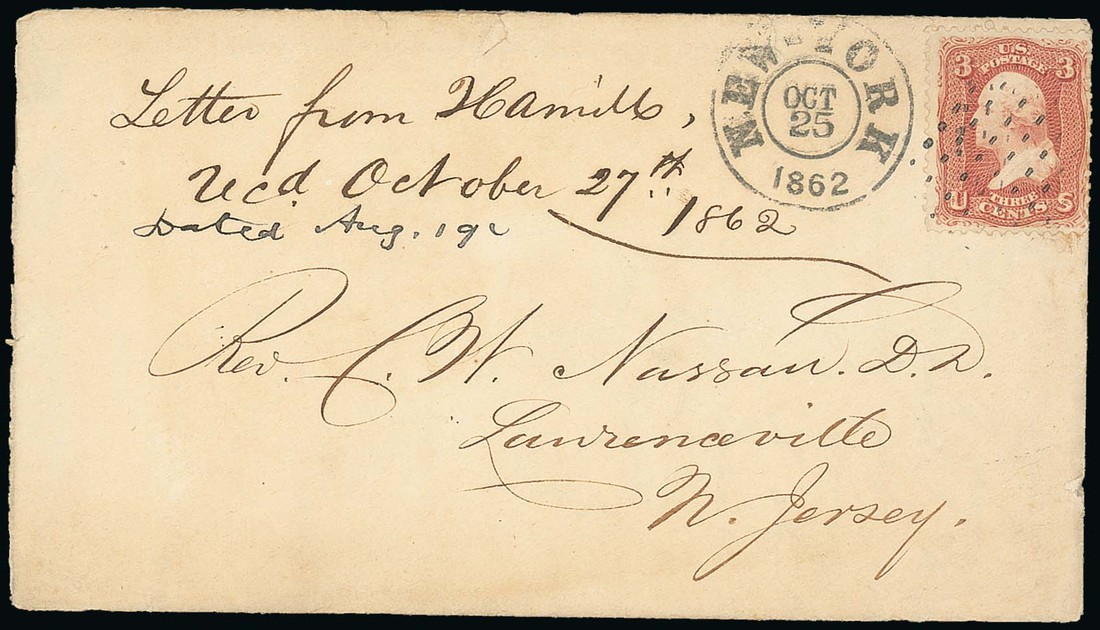 Letter from Hamill,
Recd. October 27th 1862
Dated Aug. 19
NEW-YORK
OCT
25
1862
3 U.S. 3
POSTAGE
THREE
U CENTS S
Rev. C. W. Nassau. D. D.
Lawrenceville
N. Jersey.